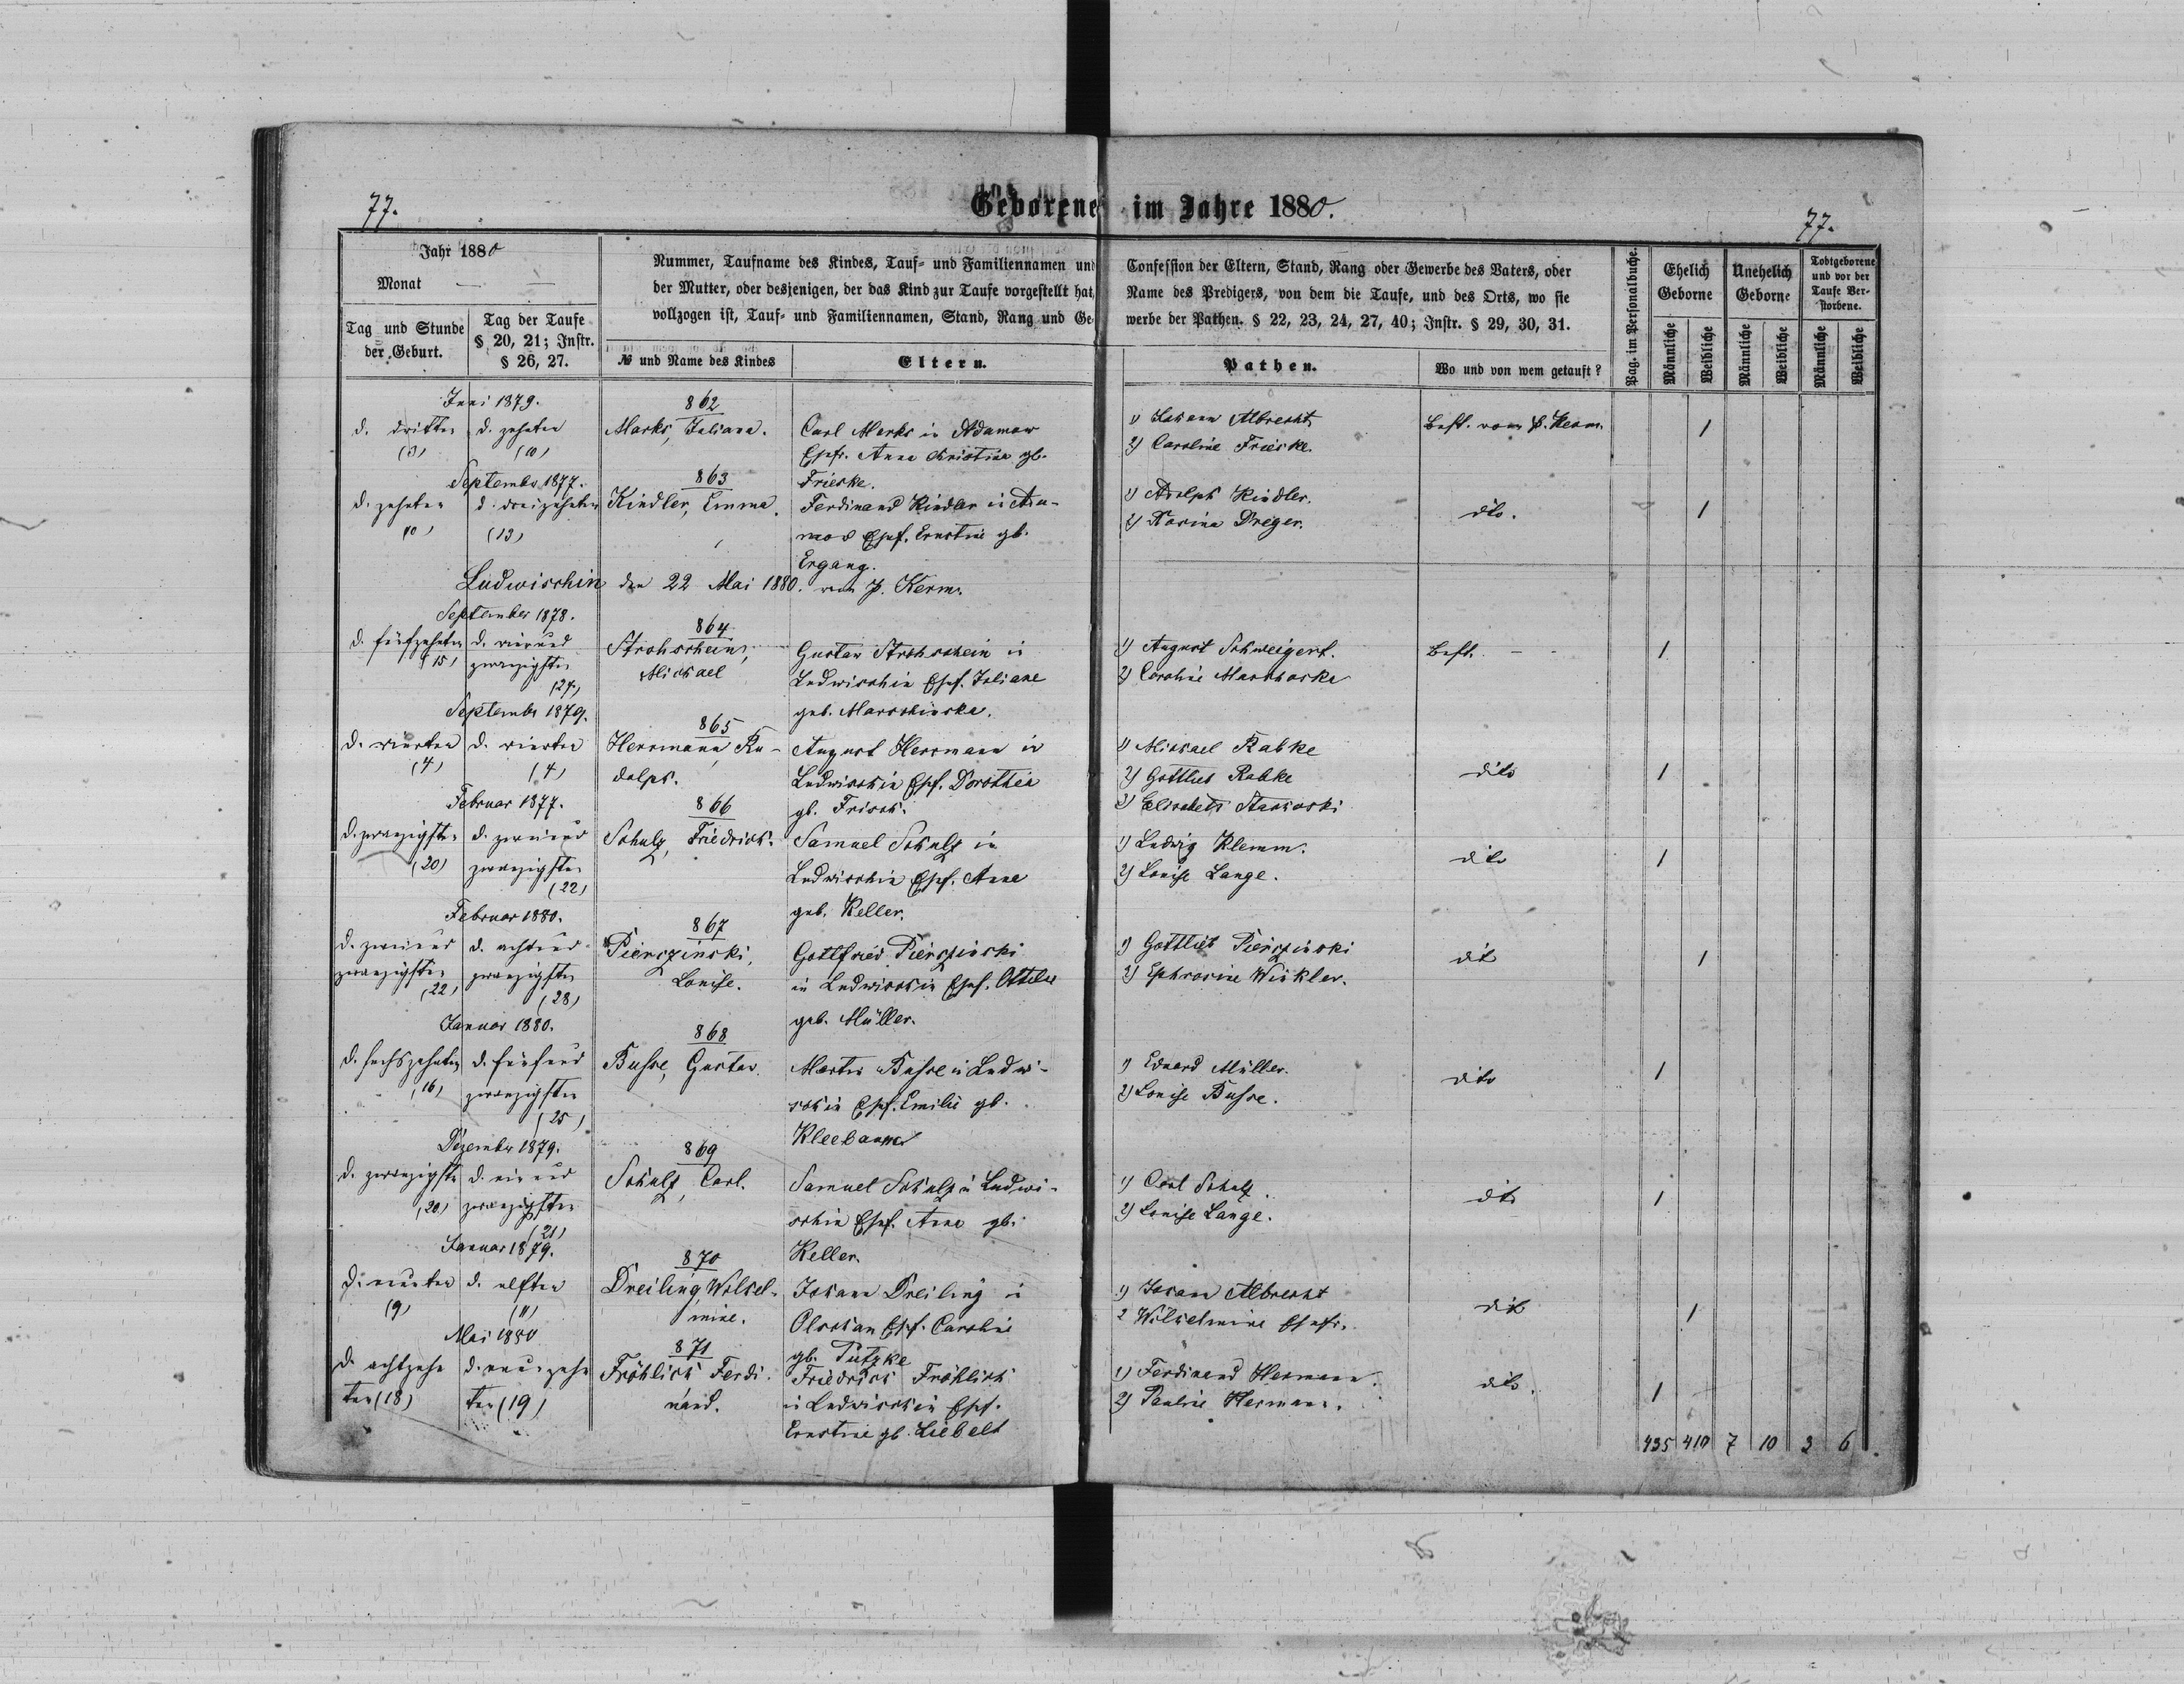 77.
Geborene im Jahre 1880.
77.
Jahr 1880
Monat — —
Tag und Stunde der Geburt.
Tag der Taufe § 20, 21; Instr. § 26, 27.
Nummer, Taufname des Kindes, Tauf- und Familiennamen und
der Mutter, oder desjenigen, der das Kind zur Taufe vorgestellt hat,
vollzogen ist, Tauf- und Familiennamen, Stand, Rang und Ge-
№ und Name des Kindes
Eltern.
Confession der Eltern, Stand, Rang oder Gewerbe des Vaters, oder
Name des Predigers, von dem die Taufe, und des Orts, wo sie
werbe der Pathen. § 22, 23, 24, 27, 40; Instr. § 29, 30, 31.
Pathen.
Wo und von wem getauft?
Pag. im Personalbuche.
Ehelich Geborne
Unehelich Geborne
Todtgeborene und vor der Taufe Verstorbene.
Männliche
Weibliche
Männliche
Weibliche
Männliche
Weibliche
Juni 1879.
862
d. dritten d. zehnten Marks, Juliana. Carl Marks in Adamow 1) Johann Albrecht Best. vom P. Kerm. 1
(3) (10) Ehefr. Anna Christina gb. 2) Caroline Frieske.
Septembr 1877. 863 Frieske.
d. zehnten d. dreizehnten Kindler, Emma. Ferdinand Kindler in Ada- 1) Adolph Kindler. dito. 1
10) (13) mow Ehef. Ernstine gb. 2) Rosina Dreger.
Ergang.
Ludwischin den 22 Mai 1880. vom P. Kerm.
September 1878.
864
d. fünfzehnten d. vierund Strohschein, Gustav Strohschein in 1) August Schweigert. Best. - - 1
(15) zwanzigsten Michael Ludwischin Ehef. Juliane 2)
(24)
Septembr 1879. geb.
865
d. vierten d. vierten Herrmann, Ru- August Herrmann in 1) Michael Rabke
(4) (4) dolph. Ludwischin Ehef. Dorothea 2) Gottlieb Rabke dito 1
Februar 1877. 866 gb. Frisch. 3) Elisabeth
d. zwanzigsten d. zweiund Schulz, Friedrich. Samuel Schulz in 1) Ludwig Klemm. dito 1
(20) zwanzigsten Ludwischin Ehef. Anna 2) Louise Lange.
(22)
Februar 1880. geb. Keller.
867
d. zweiund d. achtund Pierszinski, Gottfried Pierszinski 1) Gottlieb Pierszinski dit 1
zwanzigsten zwanzigsten Louise. in Ludwischin Ehef. Ottilie 2) Ephrosine Winkler.
(22) (28)
Januar 1880. geb. Müller.
868
d. sechszehnten d. fünfund Busse, Gustav. Martin Busse in Ludwi- 1) Eduard Müller. dito 1
(16) zwanzigsten schin Ehef. Emilie gb. 2) Louise Busse.
(25)
Dezember 1879. Kleebaum
869
d. zwanzigsten d. einund Schulz, Carl. Samuel Schulz in Ludwi- 1) Carl Schulz. dito 1
(20) zwanzigsten schin Ehef. Anna gb. 2) Louise Lange.
(21)
Januar 1879. Keller.
870
d. neunten d. elften Dreiling, Wilhel- Johann Dreiling in 1) Johann Albrecht dito 1
(9) (11) mine. Olschan Ehef. Caroline 2 Wilhelmine Ehefr.
Mai 1880
871 gb. Tützke
d. achtzehn d. neunzehn Fröhlich Ferdi- Friedrich Fröhlich 1) Ferdinand Hermann. dito. 1
ten (18) ten (19) nand. in Ludwischin Ehef. 2) Pauline Hermann.
Ernstine gb. Liebelt
435 410 7 10 3 6